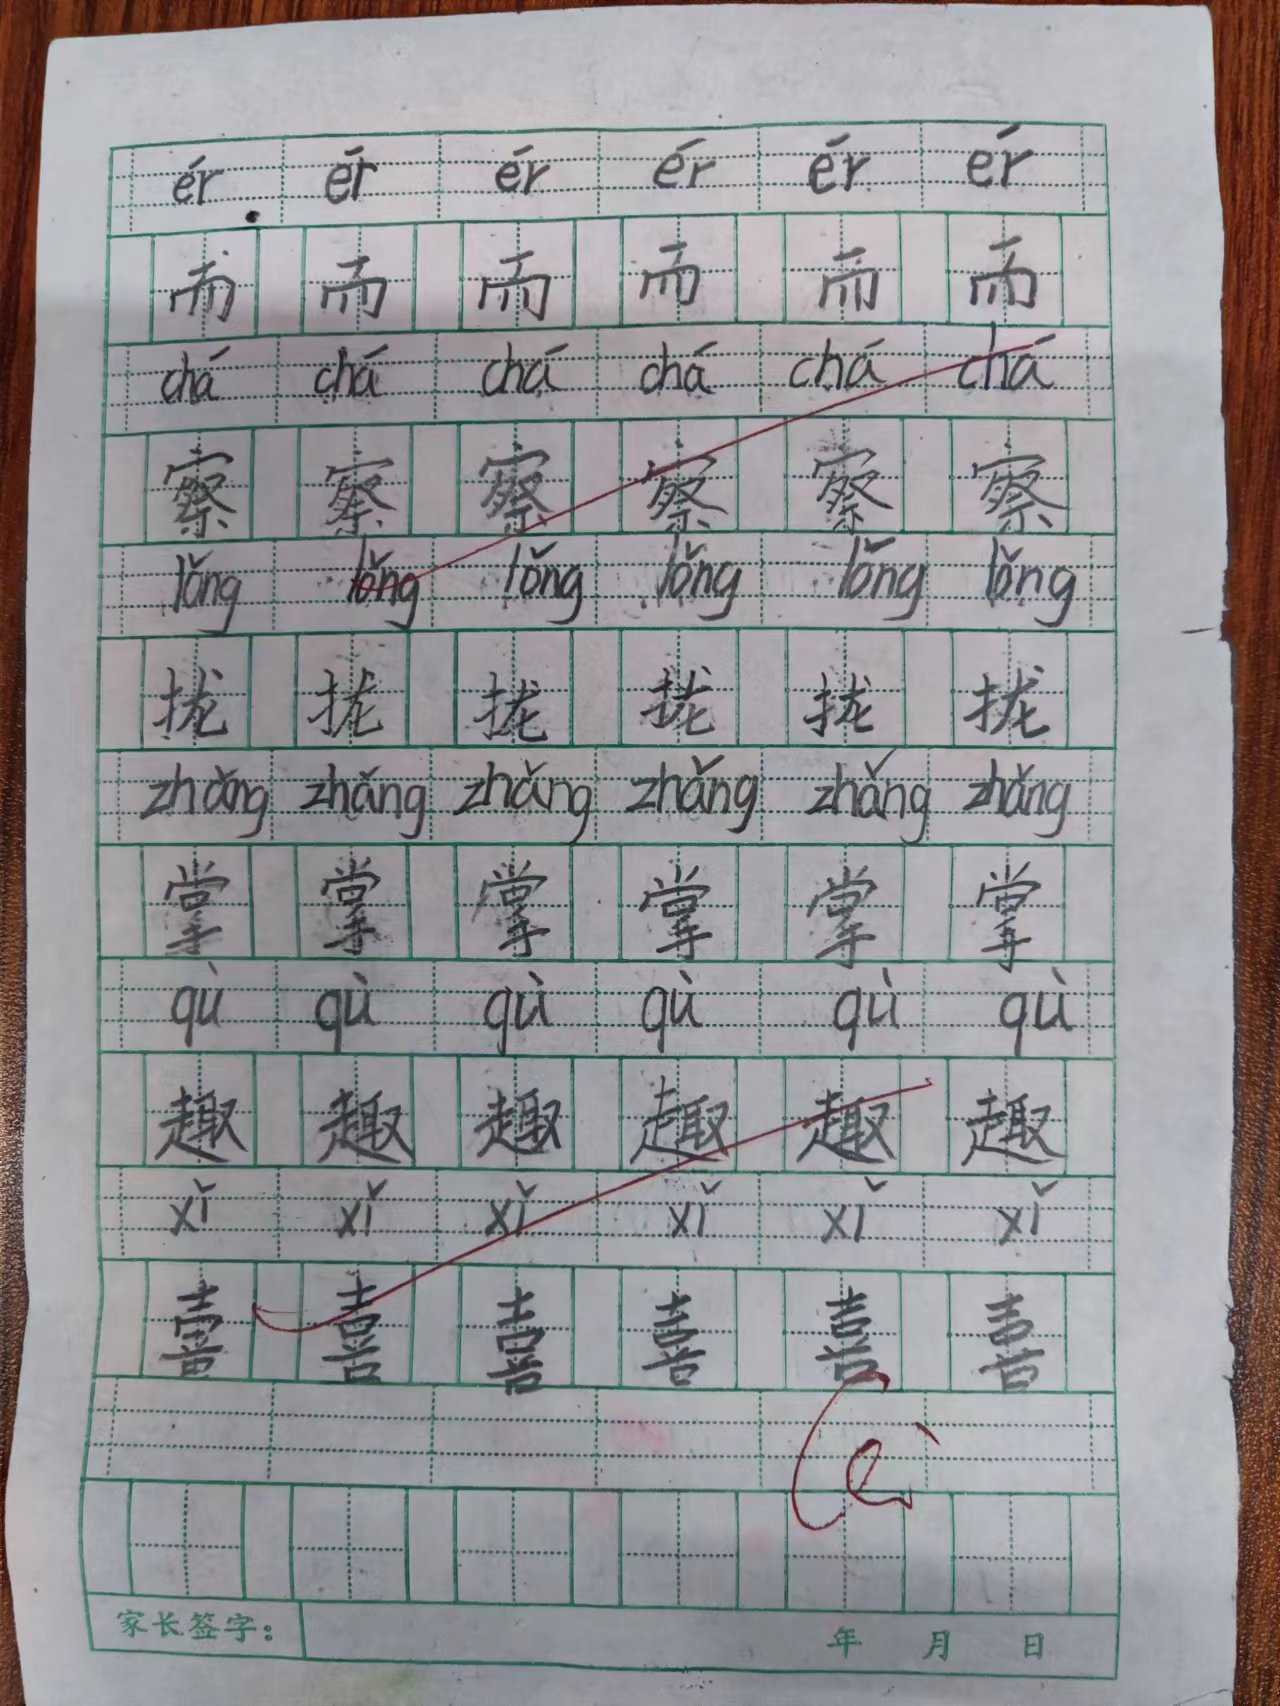 ér ér ér ér ér ér
而 而 而 而 而 而
chá chá chá chá chá chá
察 察 察 察 察 察
lǒng lǒng lǒng lǒng lǒng lǒng
拢 拢 拢 拢 拢 拢
zhǎng zhǎng zhǎng zhǎng zhǎng zhǎng
掌 掌 掌 掌 掌 掌
qù qù qù qù qù qù
趣 趣 趣 趣 趣 趣
xǐ xǐ xǐ xǐ xǐ xǐ
喜 喜 喜 喜 喜 喜
家长签字： 年 月 日